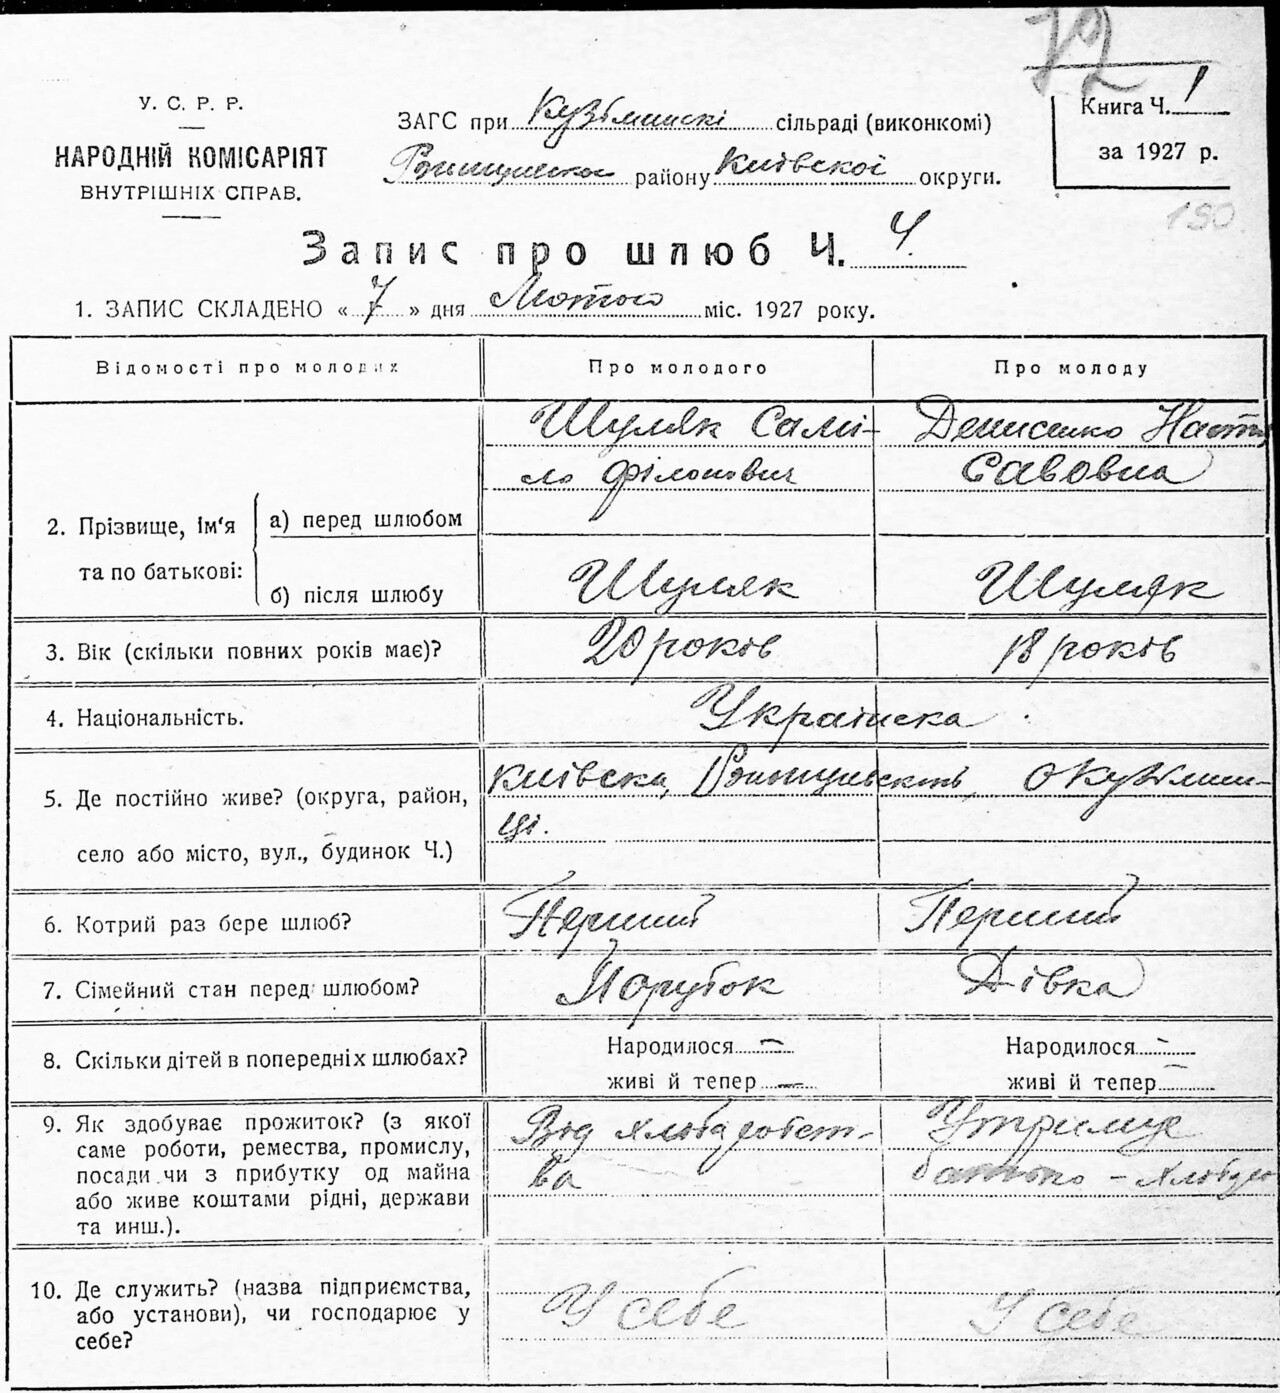 72
У. С. Р. Р.
НАРОДНІЙ КОМІСАРІЯТ
ВНУТРІШНІХ СПРАВ.
ЗАГС при Кузьминскі сільраді (виконкомі)
району Київскої округи.
Книга Ч. 1
за 1927 р.
190
Запис про шлюб Ч. 4
1. ЗАПИС СКЛАДЕНО « 7 » дня Лютого міс. 1927 року.
Відомості про молодих
Про молодого
Про молоду
2. Прізвище, ім'я та по батькові:
а) перед шлюбом
Шуляк Самі-
ло Філонович
Денисенко Настя
Савовна
б) після шлюбу
Шуляк
Шуляк
3. Вік (скільки повних років має)?
20 років
18 років
4. Національність.
Украінска
5. Де постійно живе? (округа, район,
село або місто, вул., будинок Ч.)
Київска, с Кузьмин-
ці.
6. Котрий раз бере шлюб?
Перший
Перший
7. Сімейний стан перед шлюбом?
Парубок
Дівка
8. Скільки дітей в попередніх шлюбах?
Народилося —
живі й тепер —
Народилося —
живі й тепер
9. Як здобуває прожиток? (з якої
саме роботи, ремества, промислу,
посади чи з прибутку од майна
або живе коштами рідні, держави
та инш.).
Від хлібаробст-
ва
Утримує
батько - хлібороб
10. Де служить? (назва підприємства,
або установи), чи господарює у
себе?
У себе
У себе